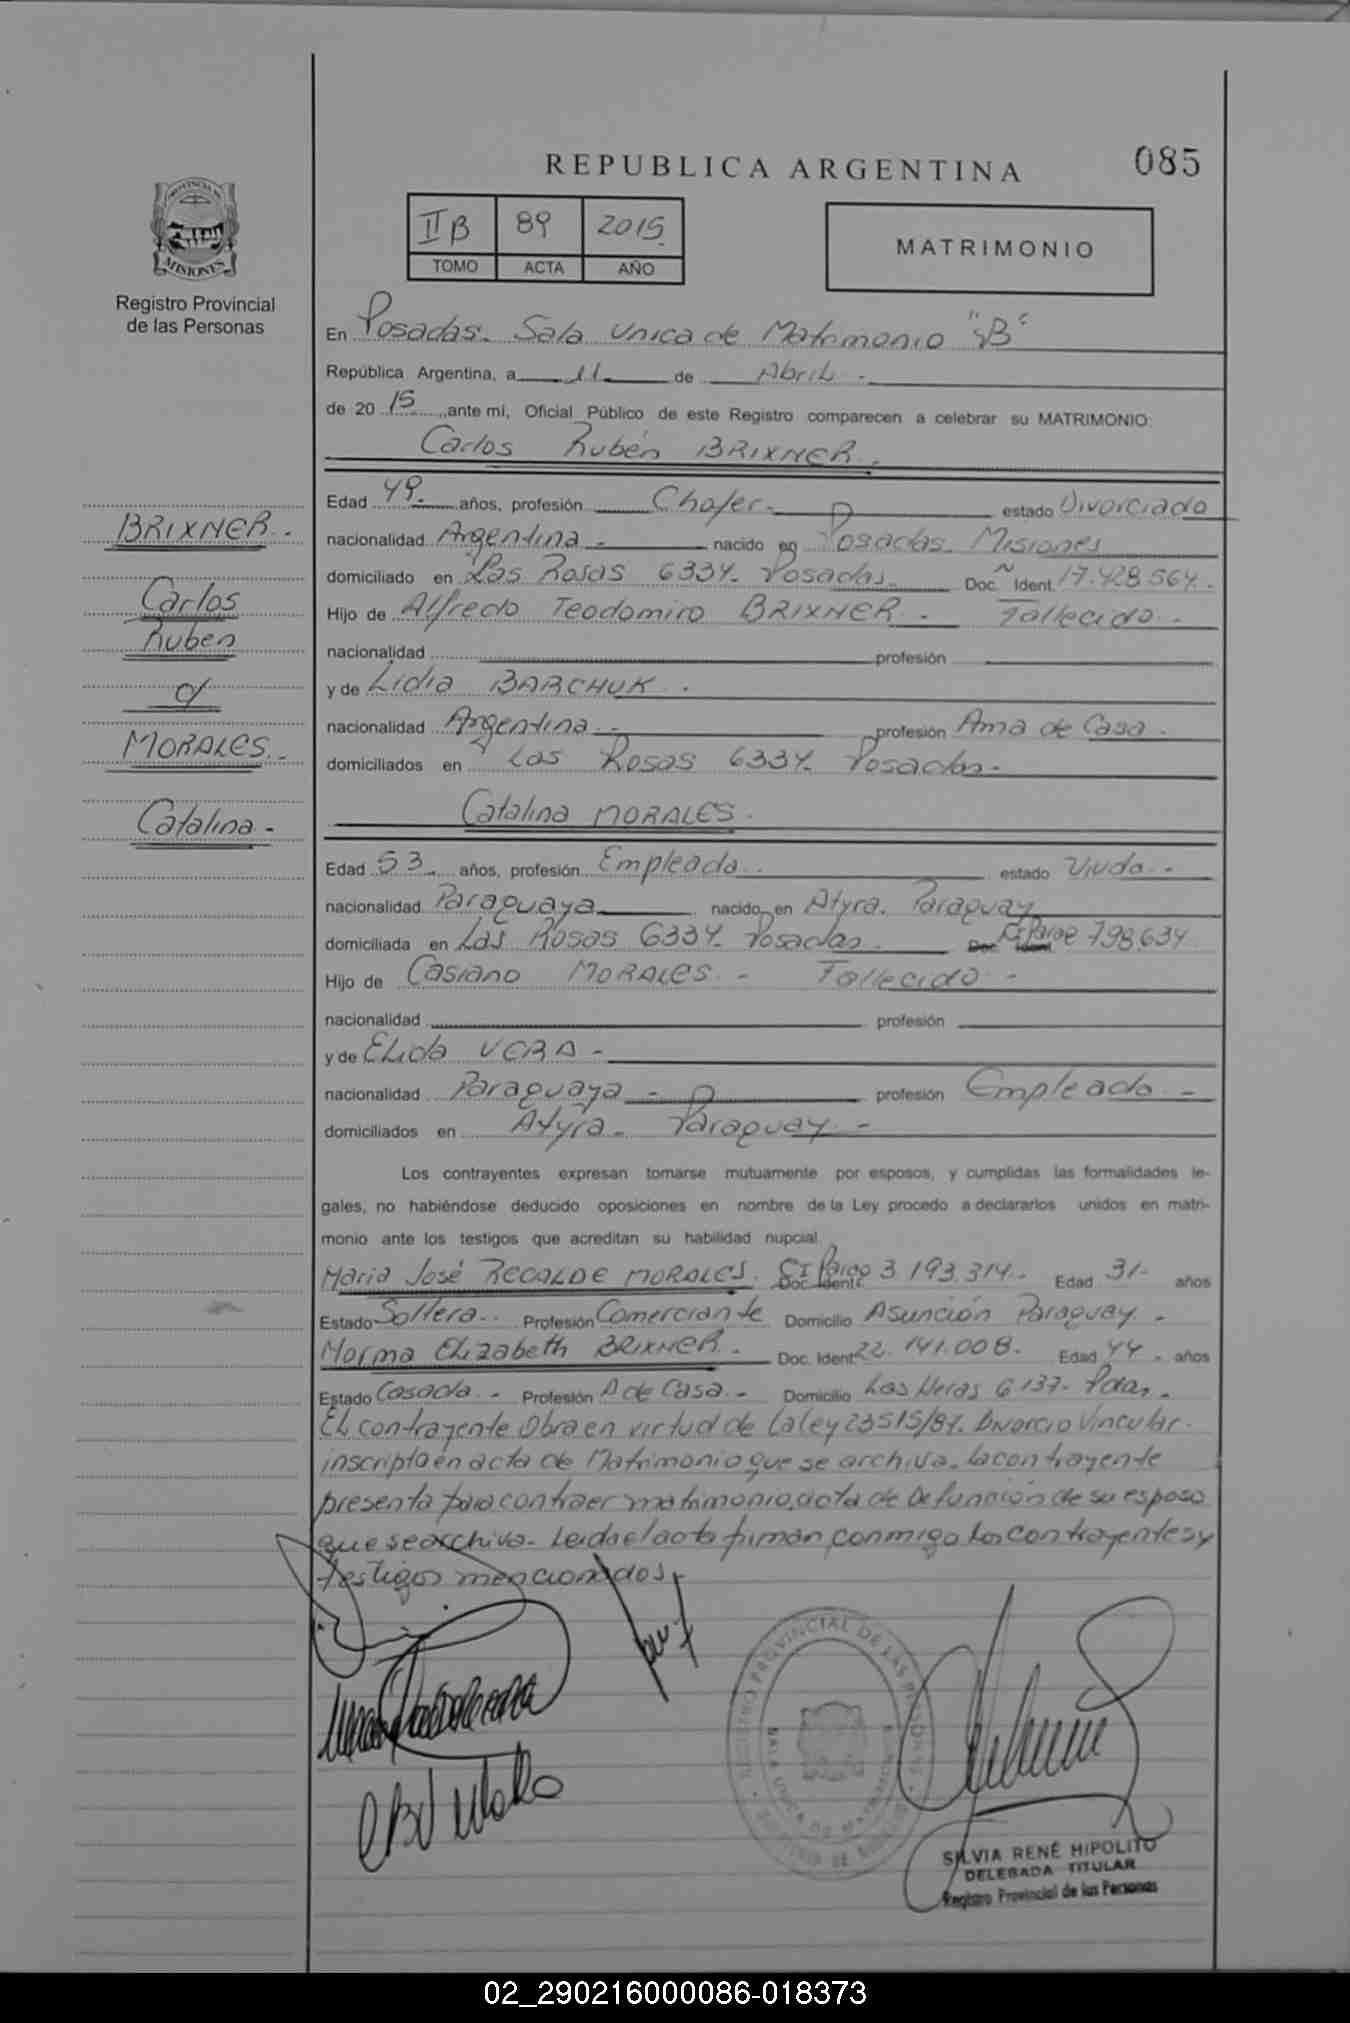 085
REPUBLICA ARGENTINA
PROVINCIA DE
MISIONES
Registro Provincial
de las Personas
II B 89 2015
TOMO ACTA AÑO
MATRIMONIO
En Posadas. Sala Unica de Matrimonio "B"
República Argentina, a 11 de Abril -
de 20 15 , ante mi, Oficial Público de este Registro comparecen a celebrar su MATRIMONIO:
Carlos Rubén BRIXNER.
BRIXNER.
Carlos
Ruben
c/
MORALES.
Catalina -
Edad 49. años, profesión Chofer- estado Divorciado
nacionalidad Argentina - nacido en Posadas. Misiones
domiciliado en Las Rosas 6334- Posadas. Doc. Ident. 17.428.564.
Hijo de Alfredo Teodomiro BRIXNER - Fallecido -
nacionalidad profesión
y de Lidia BARCHUK .
nacionalidad Argentina - profesión Ama de Casa .
domiciliados en Las Rosas 6334- Posadas-
Catalina MORALES.
Edad 53. años, profesión Empleada. estado Viuda -
nacionalidad Paraguaya nacido en Atyra. Paraguay
domiciliada en Las Rosas 6334. Posadas. Doc. Ident. CI Parag 798.634
Hijo de Casiano MORALES. - Fallecido -
nacionalidad profesión
y de Elida VERA -
nacionalidad Paraguaya - profesión Empleada -
domiciliados en Atyra - Paraguay -
Los contrayentes expresan tomarse mutuamente por esposos, y cumplidas las formalidades le-
gales, no habiéndose deducido oposiciones en nombre de la Ley procedo a declararlos unidos en matri-
monio ante los testigos que acreditan su habilidad nupcial.
Maria José RECALDE MORALES. Doc. Ident. CI Parag 3.193.314- Edad 31- años
Estado Soltera.. Profesión Comerciante Domicilio Asunción Paraguay. -
Norma Elizabeth BRIXNER. Doc. Ident. 22.141.008. Edad 44 - años
Estado Casada. - Profesión A de Casa. - Domicilio Las Heras 6137- Pdas. -
El contrayente Obra en virtud de la ley 23515/87. Divorcio Vincular.
inscripta en acta de Matrimonio que se archiva. la contrayente
presenta para contraer matrimonio, acta de Defunción de su esposo
que se archiva- Leida el acta firman conmigo los contrayentes y
testigos mencionados.
REGISTRO PROVINCIAL DE LAS PERSONAS
SALA UNICA DE MATRIMONIO
SILVIA RENÉ HIPOLITO
DELEGADA TITULAR
Registro Provincial de las Personas
02_290216000086-018373